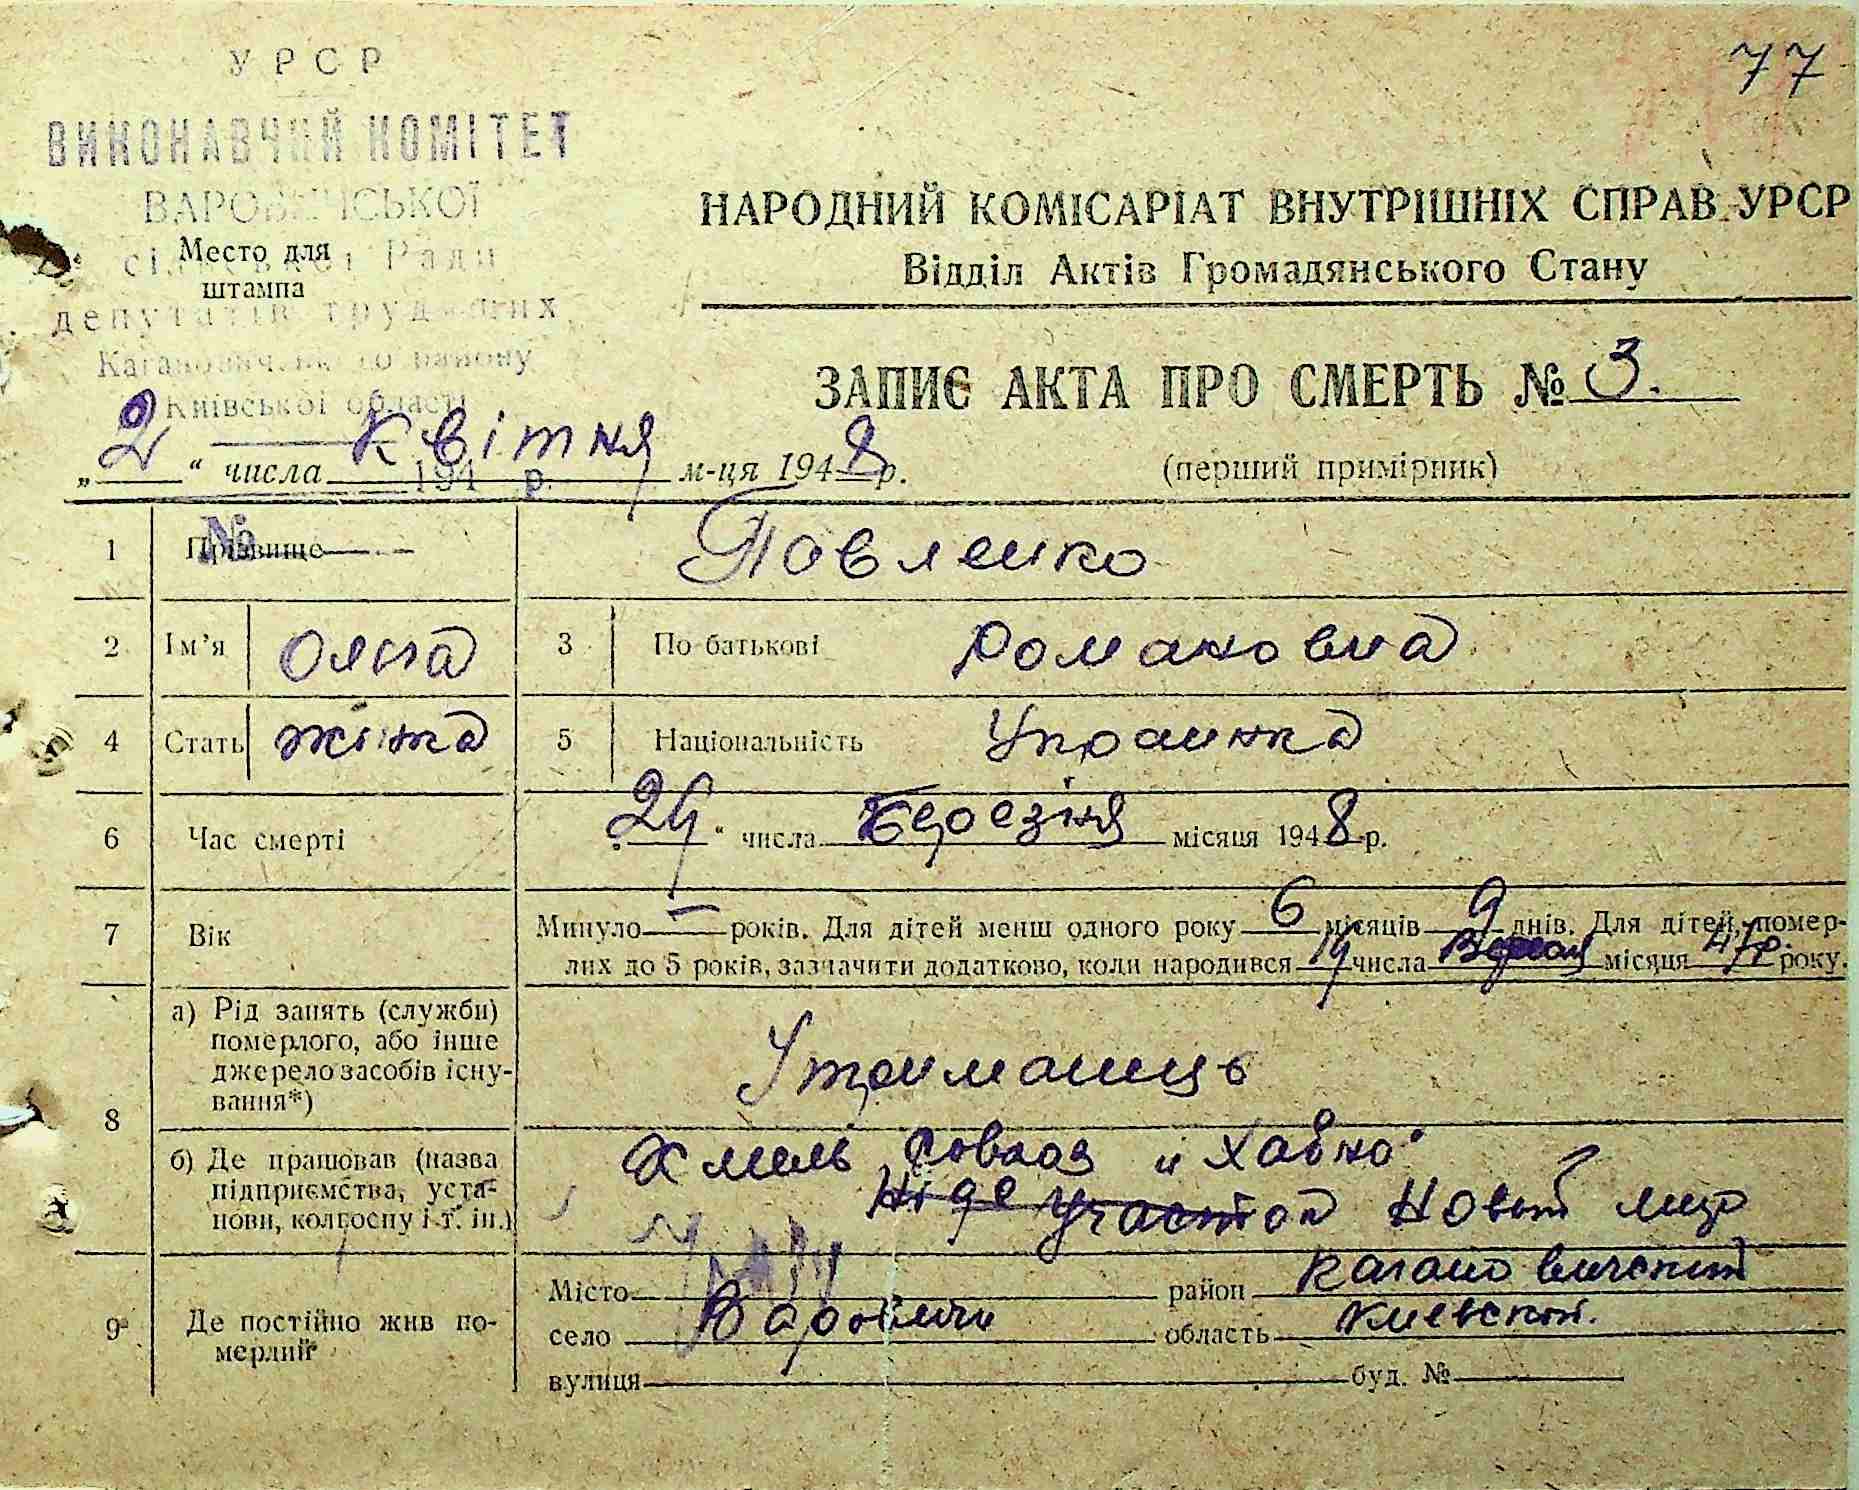 77
УРСР
ВИКОНАВЧИЙ КОМІТЕТ
ВАРОВИЧСЬКОЇ
сільської Ради
Место для
штампа
депутатів трудящих
Кагановичського району
Київської області
194 р.
№
НАРОДНИЙ КОМІСАРІАТ ВНУТРІШНІХ СПРАВ УРСР
Відділ Актів Громадянського Стану
ЗАПИС АКТА ПРО СМЕРТЬ № 3.
„2“ числа квітня м-ця 1948 р.
(перший примірник)
1 Прізвище Павленко
2 Ім'я Ольга 3 По-батькові Романовна
4 Стать жінка 5 Національність Украинка
6 Час смерті „24“ числа Березня місяця 1948 р.
7 Вік Минуло — років. Для дітей менш одного року 6 місяців 9 днів. Для дітей, помер-
лих до 5 років, зазначити додатково, коли народився 14 числа місяця 47р. року.
8 а) Рід занять (служби)
померлого, або інше
джерело засобів існу-
вання*)
Утриманець
б) Де працював (назва
підприємства, уста-
нови, колгоспу і т. ін.)
Хмель совхоз „Хабно"
Ніде участок Новый
9 Де постійно жив по-
мерлий
Місто район Кагановический
село Варовичи область Киевской.
вулиця буд. №